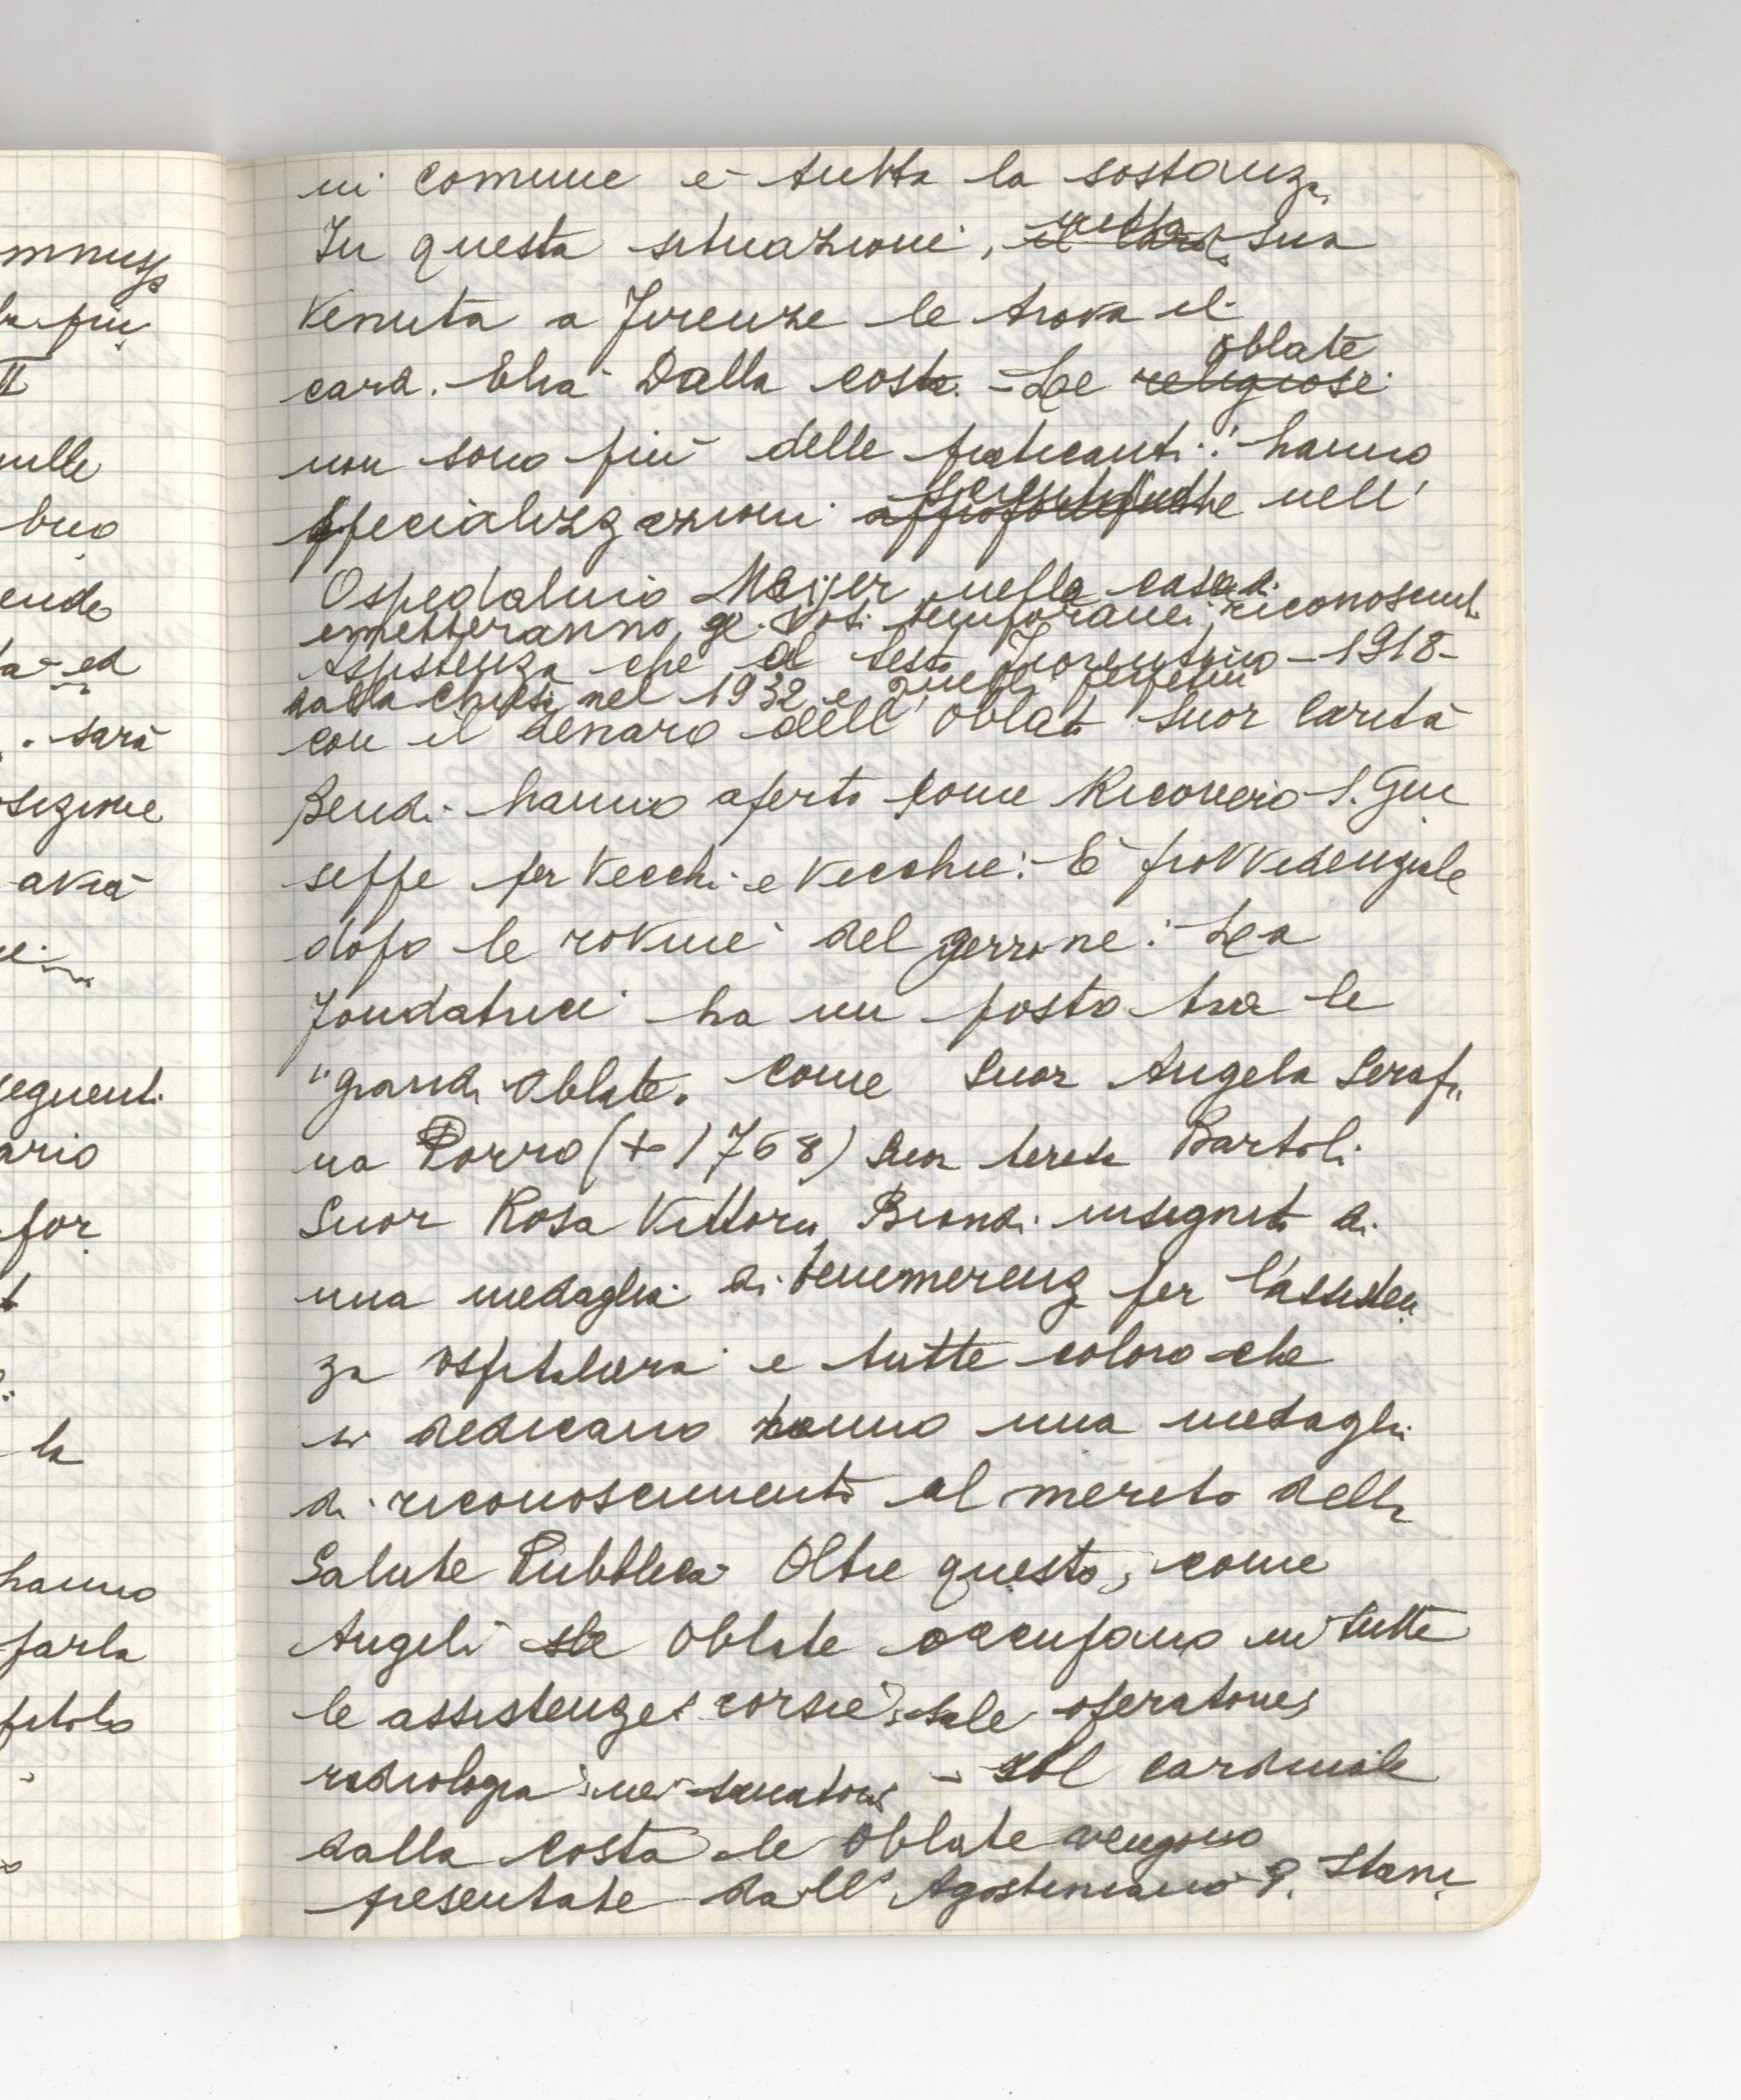 in comune è tutta la sostanza
In questa situazione, nella sua
venuta a Firenze le trova il
card. Elia Dalla Costa. - Le religiose oblate
non sono più delle praticanti: hanno
specializzazioni nell'
Ospedalino Meijer nella casa di
emetteranno voti temporanei, riconosciuti
Assistenza che al testo Fiorentino - 1918 -
dalla chiesa nel 1932 e quelli perpetui
con il denaro dell'oblata Suor Carità
Bendi hanno aperto come Ricovero S. Giu
seppe per vecchi e vecchie: È provvidenziale
dopo le rovine del gerrone: La
fondatrice ha un posto tra le
"grandi Oblate. come Suor Angela Serafi
na Porro (+ 1768) Suor Teresa Bartoli
Suor Rosa Vittoria Biondi insignita di
una medaglia di benemerenz per l'assisten
za ospitaliera e tutte coloro che
si dedicano hanno una medaglia
di riconoscimento al merito della
Salute Pubblica Oltre questo, come
Angeli le Oblate occupano in tutte
le assistenze: corsie, sale operatorie,
radiologia, nei sanatori - Al cardinale
dalla Costa le Oblate vengono
presentate dall'Agostiniano P. Stani
mmess
più
II
nelle
ende
ta - ed
. sarà
osizione
avrà
seguenti
ario
per
la
hanno
parla
pitolo